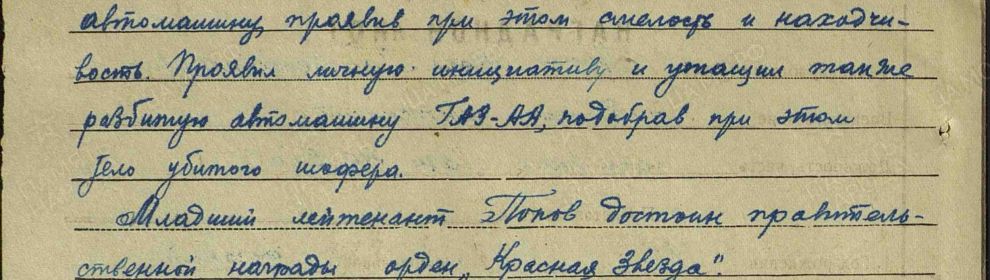 автомашину, проявив при этом смелость и находчи-
вость. Проявил личную инициативу и утащил также
разбитую автомашину ГАЗ-АА, подобрав при этом
тело убитого шофера.
Младший лейтенант Попов достоин правитель-
ственной награды орден „Красная Звезда".